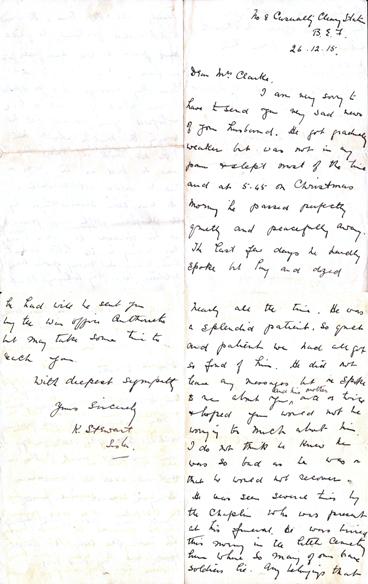 No 8 Casualty Clearing Station
B.E.F.
26.12.15.
Dear Mrs Clarke.
I am very sorry to
have to send you very sad news
of your husband. He got gradually
weaker but was not in any
pain & slept most of the time
and at 5.45 on Christmas
Morning he passed perfectly
quietly and peacefully away.
The last few days he hardly
spoke but lay and dozed
nearly all the time. He was
a splendid patient. So quiet
and patient we had all got
so fond of him. He did not
leave any messages but he spoke
to me about you, and his mother, once or twice
& hoped you would not be
worrying too much about him.
I do not think he knew he
was so bad as he was or
that he would not recover.
He was seen several times by
the Chaplin who was present
at his funeral. He was buried
this morning in the little Cemetery
here where so many of our brave
soldiers lie. Any belongings that
he had will be sent you
by the War Office Authorities
but may take some time to
reach you.
With deepest sympathy
Yours Sincerely
K. Stewart
Sister